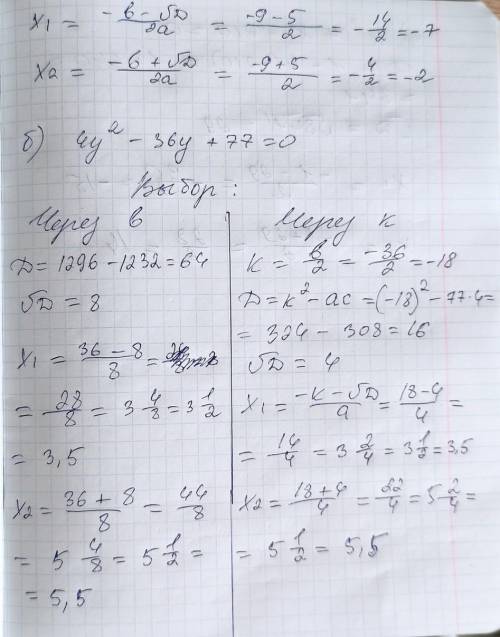 x1 = (-b - √D)/2a = (-9 - 5)/2 = -14/2 = -7
x2 = (-b + √D)/2a = (-9 + 5)/2 = -4/2 = -2
б) 4y² - 36y + 77 = 0
Выбор:
Через b
D = 1296 - 1232 = 64
√D = 8
x1 = (36 - 8)/8 =
= 28/8 = 3 4/8 = 3 1/2
= 3,5
x2 = (36 + 8)/8 = 44/8
= 5 4/8 = 5 1/2 =
= 5,5
Через k
k = b/2 = -36/2 = -18
D = k² - ac = (-18)² - 77·4 =
= 324 - 308 = 16
√D = 4
x1 = (-k - √D)/a = (18 - 4)/4 =
= 14/4 = 3 2/4 = 3 1/2 = 3,5
x2 = (18 + 4)/4 = 22/4 = 5 2/4 =
= 5 1/2 = 5,5